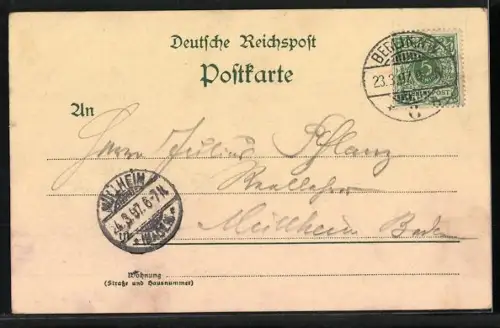 Deutsche Reichspost
Postkarte
An
BERLIN
23.3.97
Herrn Julius Pflanz
Reallehrer
Müllheim Baden
MÜLLHEIM
24.3.97. 6-7N.
* (BADEN) *
Wohnung
(Straße und Hausnummer)